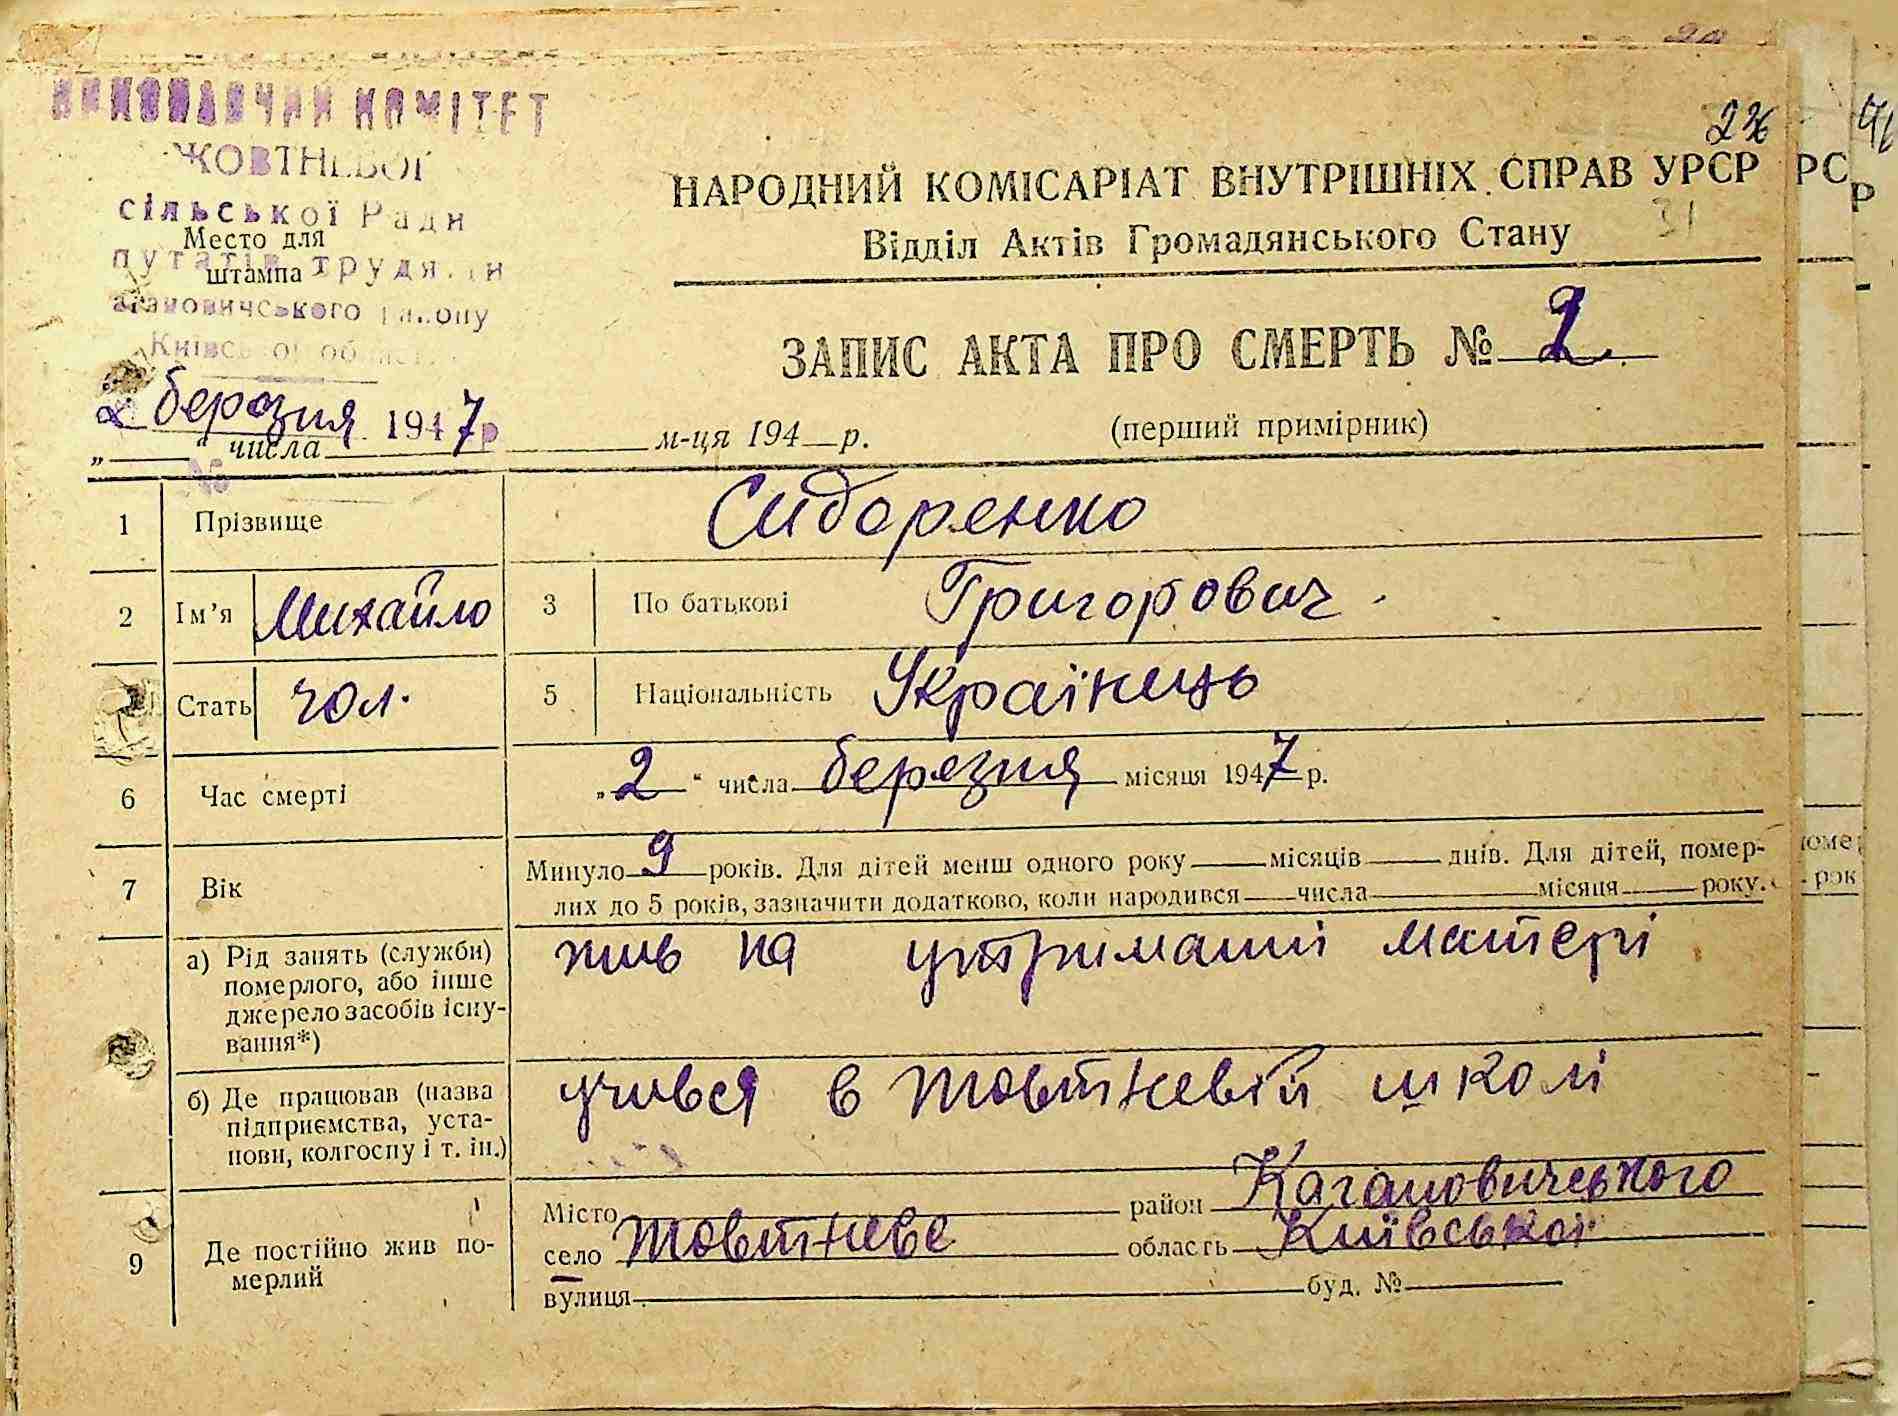 ВИКОНАВЧИЙ КОМІТЕТ
ЖОВТНЕВОЇ
сільської Ради
Место для
путатів трудящ ин
штампа
агановичського району
Київської області
2 березня 1947 р
226
НАРОДНИЙ КОМІСАРІАТ ВНУТРІШНІХ СПРАВ УРСР
31
Відділ Актів Громадянського Стану
ЗАПИС АКТА ПРО СМЕРТЬ № 2
„ “ числа м-ця 194 р.
(перший примірник)
№
1 Прізвище Сидоренко
2 Ім’я Михайло 3 По батькові Григорович
Стать чол. 5 Національність Українець
6 Час смерті „2“ числа березня місяця 1947 р.
7 Вік Минуло 9 років. Для дітей менш одного року місяців днів. Для дітей, помер-
лих до 5 років, зазначити додатково, коли народився числа місяця року.
а) Рід занять (служби)
померлого, або інше
джерело засобів існу-
вання*)
жив на утриманні матері
б) Де працював (назва
підприємства, уста-
нови, колгоспу і т. ін.)
учився в Жовтневій школі
9 Де постійно жив по-
мерлий
Місто район Кагановичського
село Жовтневе область Київської
вулиця буд. №
РС
Р
поме
рок